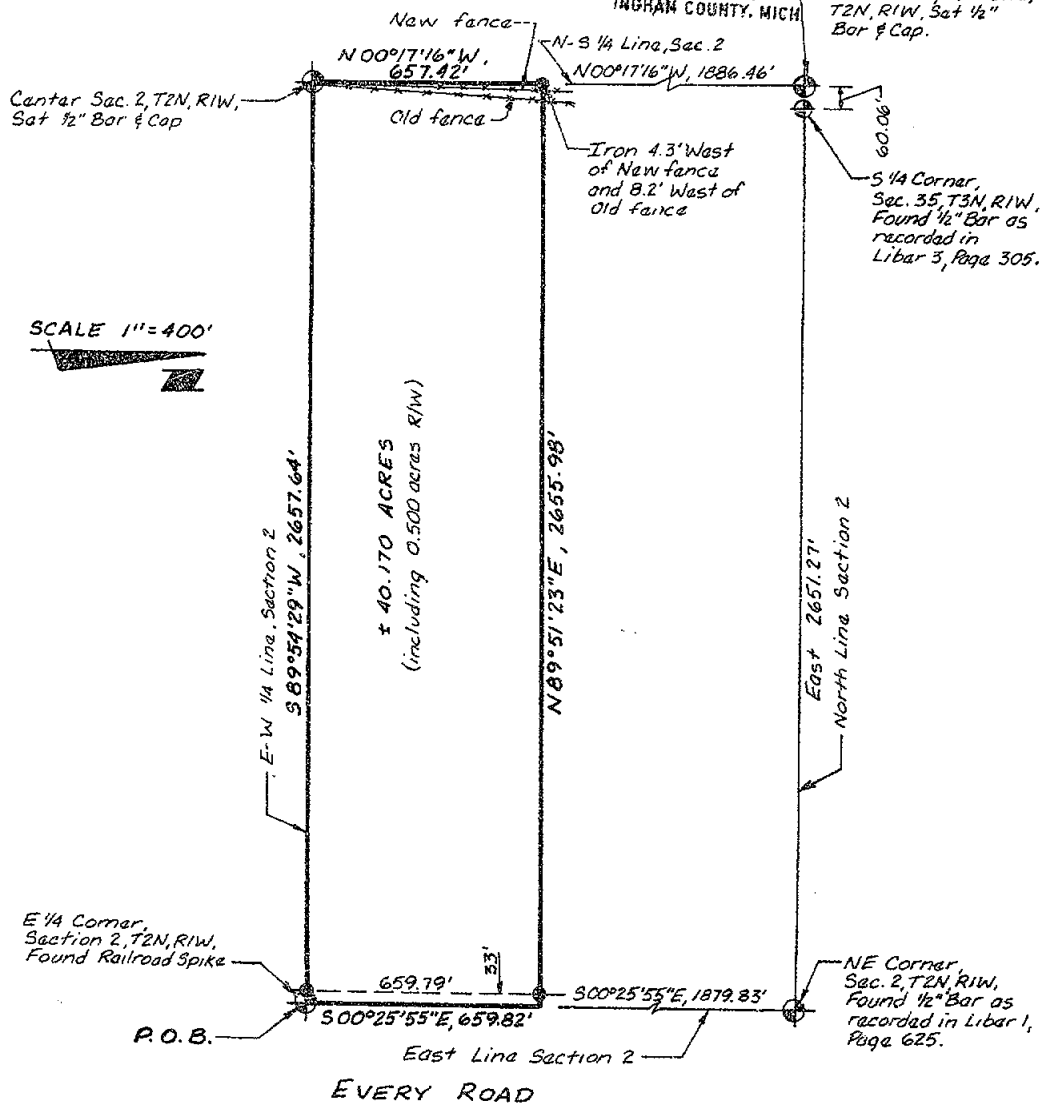 INGHAM COUNTY, MICH
T2N, R1W, Set ½"
Bar & Cap.
New fence
N 00°17'16" W,
657.42'
N-S ¼ Line, Sec. 2
N00°17'16"W, 1886.46'
Center Sec. 2, T2N, R1W,
Set ½" Bar & Cap
Old fence
60.06'
Iron 4.3' West
of New fence
and 8.2' West of
Old fence
S ¼ Corner,
Sec. 35, T3N, R1W,
Found ½" Bar as
recorded in
Liber 3, Page 305.
SCALE 1"=400'
N
E-W ¼ Line, Section 2
S 89°54'29" W, 2657.64'
± 40.170 ACRES
(including 0.500 acres R/W)
N 89°51'23" E, 2655.98'
East 2651.27'
North Line Section 2
E ¼ Corner,
Section 2, T2N, R1W,
Found Railroad Spike
659.79'
33'
S 00°25'55" E, 659.82'
S00°25'55"E, 1879.83'
P.O.B.
East Line Section 2
NE Corner,
Sec. 2, T2N, R1W,
Found ½" Bar as
recorded in Liber 1,
Page 625.
EVERY ROAD